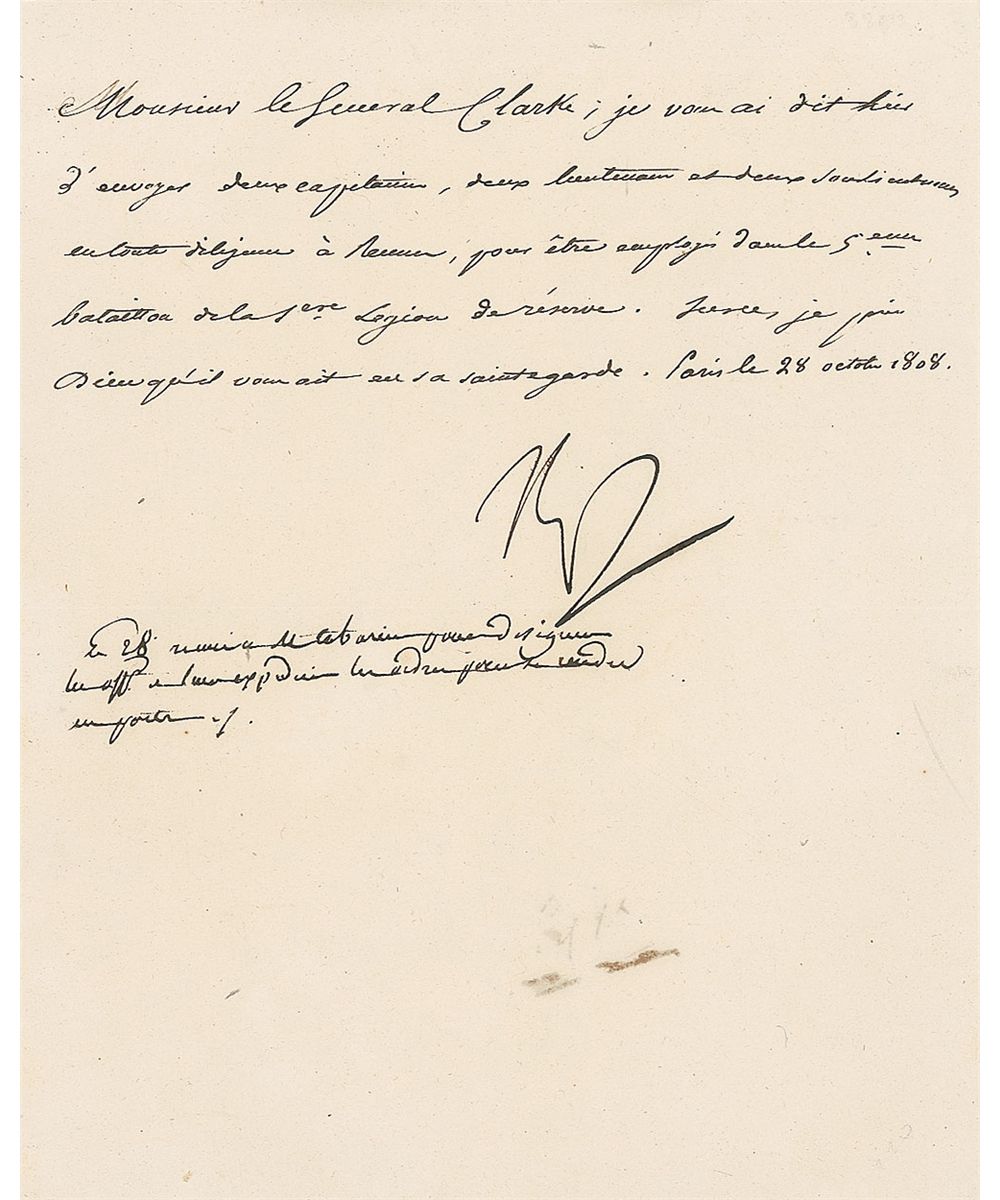 Monsieur le General Clarke; je vous ai dit hier
d'envoyer deux capitaines, deux lieutenans et deux souslieutenans
en toute diligence à Rennes, pour être employés dans le 5eme
bataillon de la 1ere Legion de réserve. Sur ce, je prie
Dieu qu'il vous ait en sa sainte garde. Paris le 28 octobre 1808.
Le 28 remis a M pour designer
les offrs et leur expédier les ordres pour se rendre
en poste ./.